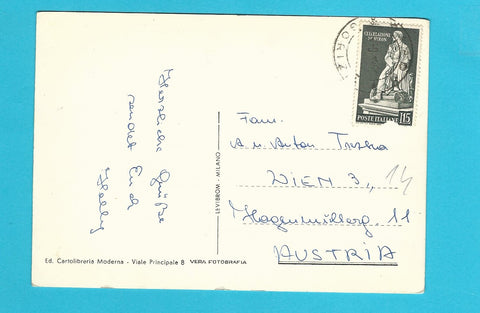 Herzliche Grüße
sendet Euch
CELEBRAZIONI
DI BYRON
POSTE ITALIANE
L.15
GORIZIA
Fam.
A. u. Anton
WIEN 3,,
14
Hagenmüllerg. 11
AUSTRIA
LEVIBROM - MILANO
Ed. Cartolibreria Moderna - Viale Principale 8 VERA FOTOGRAFIA